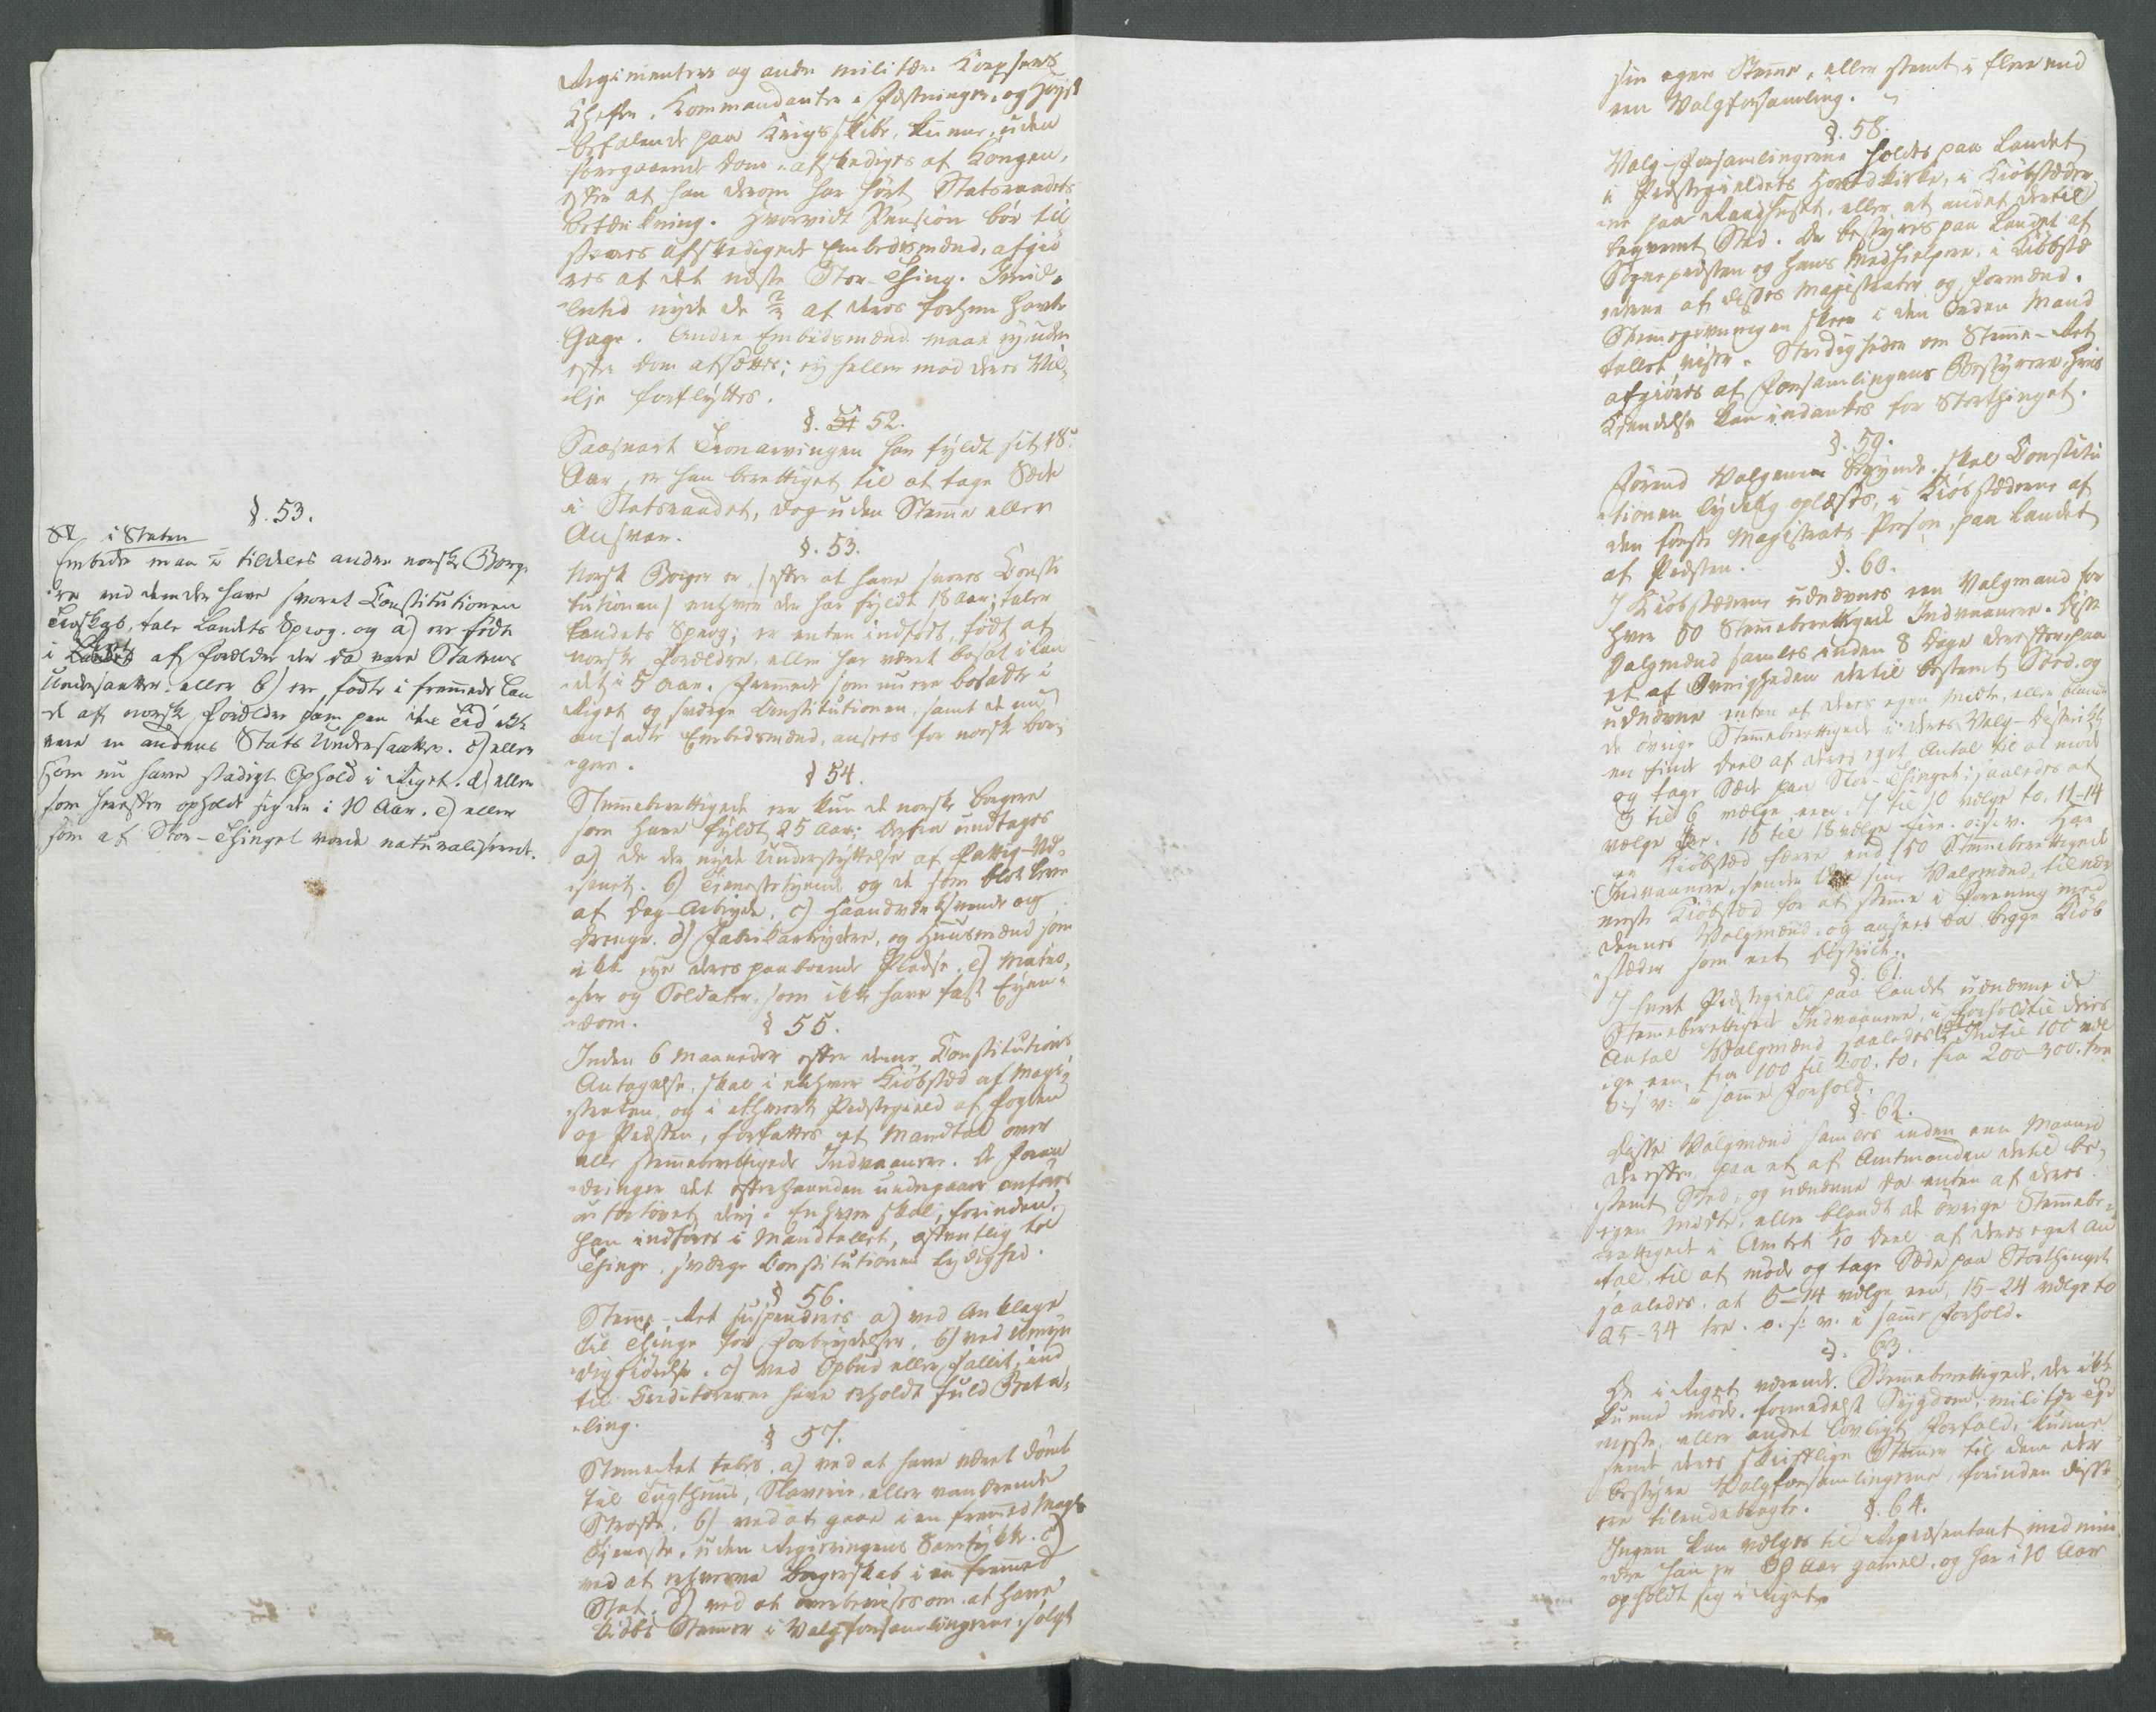 §. 53.
i Staten
Embeder maa tildeles andre norske Borge
re end dem der have svoret Constitutionen
Troskab, tale Landets Sprog. og a) ere födte
i Landet af forældre der da vare Statens
Undersaatter. eller b) ere födte i fremmede Lan
de af norske Forældre som paa den Tid ikke
vare en andens Stats Undersaatter. c) eller
som nu have stadigt Ophold i Riget. d) eller
som herefter opholde sig der i 10 Aar. e) eller
som af Stor-Thinget vorde naturaliserede.
Regimenters og andre militære Corpsers
Chefer, Kommandanter i Fæstninger, og Höjst
befalende paa Krigsskibe, kunne, uden
foregaaende Dom, afskediges af Kongen,
efter at han derom har hört Statsraadets
Betænkning. Hvorvidt Pension bör til
staaes afskedigede Embedsmænd, afgiö
res af det næste Stor-Thing. Imid-
lertid nyde de 2/3 af deres forhen havte
Gage. Andre Embedsmænd maae ej uden
efter Dom afsættes; ej heller mod deres Vil
lje forflyttes.
§. 51 52.
Saasnart Tronarvingen har fyldt sit 18de
Aar, er han berettiget til at tage Sæde
i Statsraadet, dog uden Stemme eller
Ansvar.
§. 53.
Norsk Borger er, (efter at have svoret Consti
tutionen) enhver der har fyldt 18 Aar; taler
Landets Sprog; er enten indfödt, födt af
norske Forældre, eller har været bosat i Lan
det i 5 Aar. Fremmede som nu ere bosatte i
Riget og sværge Constitutionen, samt de nu
ansatte Embedsmænd, ansees for norske Bor
gere.
§ 54.
Stemmeberettigede ere kun de norske Borgere
som have fyldt 25 Aar; Derfra undtages
a) De der nyde Understyttelse af Fattig-Væ
senet. b) Tienestetyende og de som blot leve
af Dag-Arbejde. c) Haandværkssvende og
Drenge. d) Fabrikarbejdere, og Huusmænd som
ikke eje deres paaboende Pladse. e) Matro
ser og Soldater, som ikke have fast Ejen-
dom.
§ 55.
Inden 6 Maaneder efter denne Constitutions
Antagelse, skal i enhver Kiöbstæd af Magi
straten, og i ethvert Præstegield af Fogden
og Præsten, forfattes et Mandtal over
alle stemmeberettigede Indvaanere. De Foran
dringer det efterhaanden undergaaer anföres
ufortövet deri. Enhver skal, forinden
han indföres i Mandtallet, offentlig til
Thinge, sværge Constitutionen Lydighed.
§ 56.
Stemme-Ret suspenderes a) ved Anklage
til Thinge for Forbrydelser, b) ved Umyn
diggiörelse. c) ved Opbud eller Fallit, ind
til Creditorerne have erholdt fuld Beta-
ling.
§ 57.
Stemmeret tabes, a) ved at have været dömt
til Tugthuus, Slaverie, eller vanærende
Straffe, b) ved at gaae i en fremmed Magts
Tjeneste, uden Regieringens Samtykke. c)
ved at erhverve Borgerskab i en fremmed
Stat. d) ved at overbevises om at have
kiöbt Stemmer i Valgforsamlingerne, solgt
sin egen Stemme, eller stemt i flere end
een Valgforsamling.
§. 58.
Valg-Forsamlingerne holdes paa Landet
i Præstegieldets Hovedkirke, i Kiöbstæder
ne paa Raadhuset, eller et andet dertil
beqvemt Sted. De bestyres paa Landet af
Sognepræsten og hans Medhielpere, i Kiöbstæ
derne af disses Magistrater og Formænd.
Stemmegivningen skeer i den Orden Mand
tallet viser. Stridigheder om Stemme-Ret
afgiöres af Forsamlingens Bestyrere, hvis
Kjendelse kan indankes for Storthinget.
§. 59.
Förend Valgene begynde, skal Constitu
tionen lydelig oplæses, i Kiöbstæderne af
den förste Magistrats-Person, paa Landet
af Præsten.
§. 60.
I Kiöbstæderne udnævnes een Valgmand for
hver 50 Stemmeberettigede Indvaanere. Disse
Valgmænd samles inden 8 Dage derefter, paa
et af Övrigheden dertil bestemt Sted, og
udnævne enten af deres egen Midte, eller blandt
de övrige Stemmeberettigede i deres Valg-District
en fierde Deel af deres eget Antal til at möde
og tage Sæde paa Stor-Thinget; saaledes at
3 til 6 vælge een, 7 til 10 vælge to, 11-14
vælge tre, 15 til 18 vælge fire. o.s.v. Har
en Kiöbstæd færre end 150 Stemmeberettigede
Indvaanere, sender den sine Valgmænd, til nær
meste Kiöbstæd for at stemme i Forening med
dennes Valgmænd, og ansees da begge Kiöb
stæder som eet District.
§. 61.
I hvert Præstegield paa Landet udnævne de
Stemmeberettigede Indvaanere, i Forhold til deres
Antal Valgmænd saaledes at Indtil 100 væl
ge een, fra 100 til 200. to, fra 200-300. tre
o: s: v: i samme Forhold.
§. 62.
Disse Valgmænd samles inden een Maaned
derefter, paa et af Amtmanden dertil be
stemt Sted, og udnævne da enten af deres
egen Midte, eller blandt de övrige Stemmebe-
rettigede i Amtet 1/10 Deel af deres eget An
tal, til at möde og tage Sæde paa Storthinget
saaledes, at 5-14 vælge een, 15-24 vælge to
25-34 tre. o. s: v: i samme Forhold.
§. 63.
De i Riget værende Stemmeberettigede, der ikke
kunne möde formedelst Sygdom, militær Tje
neste, eller andet lovligt Forfald, kunne
sende deres skriftlige Stemmer til dem der
bestyre Valgforsamlingerne, forinden disse
ere tilendebragte.
§. 64.
Ingen kan vælges til Repræsentant, med min
dre han er 30 Aar gammel, og har i 10 Aar
opholdt sig i Riget.